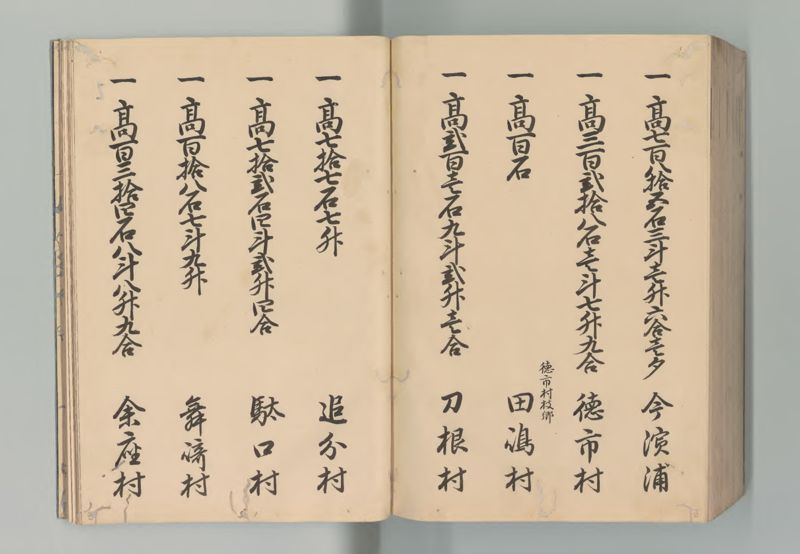 一 高七百拾五石三斗壱升六合壱夕 今濱浦
一 高三百弐拾八石壱斗七升九合 徳市村
徳市村枝郷
一 高百石 田嶋村
一 高弐百壱石九斗弐升壱合 刀根村
一 高七拾七石七升 追分村
一 高七拾弐石四斗弐升四合 駄口村
一 高百拾八石七斗九升 舞﨑村
一 高百三拾四石八斗八升九合 余座村